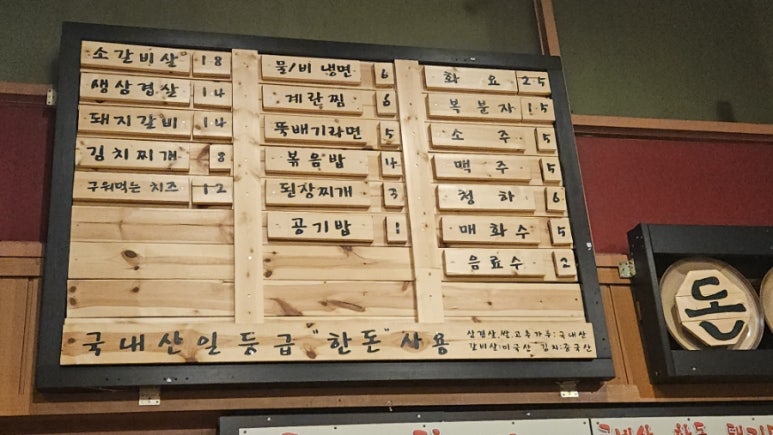 소갈비살 18
생삼겹살 14
돼지갈비 14
김치찌개 8
구워먹는 치즈 12
물/비 냉면 6
계란찜 6
뚝배기라면 5
볶음밥 4
된장찌개 3
공기밥 1
화요 25
복분자 15
소주 5
맥주 5
청하 6
매화수 5
음료수 2
국내산 일등급 "한돈" 사용
삼겹살,쌀,고추가루:국내산
갈비살:미국산 김치:중국산
돈